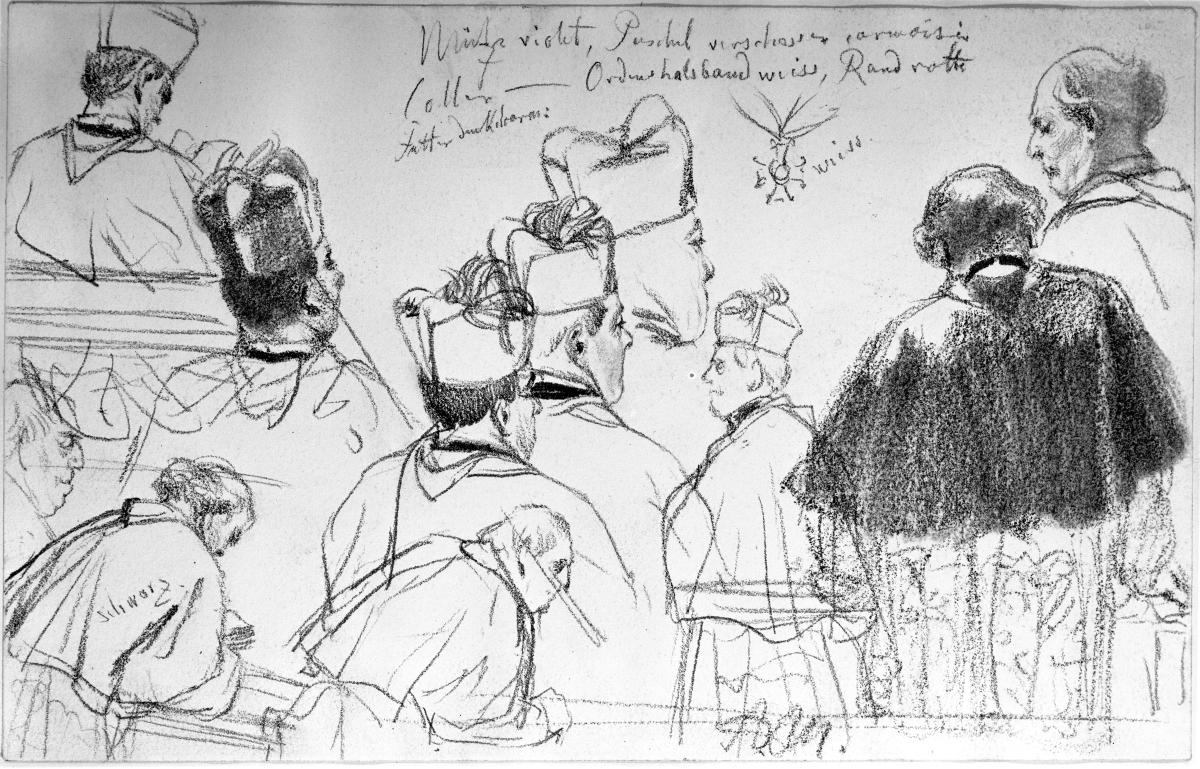 Mütze violet, Puschel verschossen carmoisin
Coller — Ordenshalsband weiss, Rand roth
Futter dunkelcarm:
weiss.
schwarz.
A.v.M.